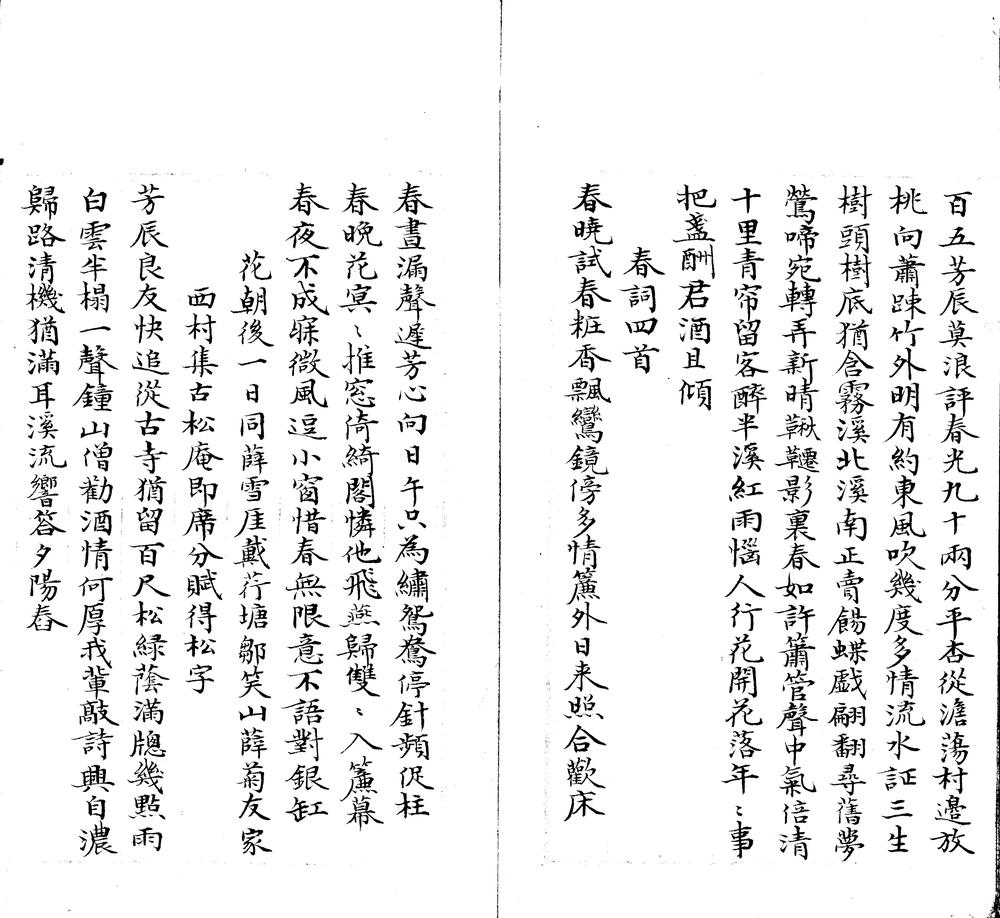 百五芳辰莫浪評春光九十兩分平杏從澹蕩村邊放
桃向蕭踈竹外明有約東風吹幾度多情流水証三生
樹頭樹底猶含霧溪北溪南正賣餳蝶戲翩翻尋舊夢
鶯啼宛轉弄新晴鞦韆影裏春如許簫管聲中氣倍清
十里青帘留客醉半溪紅雨惱人行花開花落年〻事
把盞酬君酒且傾
春詞四首
春曉試春粧香飄鸞鏡傍多情簾外日来照合歡床
春晝漏聲遲芳心向日午只為繡鴛鴦停針頻促柱
春晚花寞〻推窓倚綺閣憐他飛燕歸雙〻入簾幕
春夜不成寐微風逗小窗惜春無限意不語對銀缸
花朝後一日同薛雪厓戴荇塘鄒笑山薛菊友家
西村集古松庵即席分賦得松字
芳辰良友快追從古寺猶留百尺松緑蔭滿牕幾點雨
白雲半榻一聲鐘山僧勸酒情何厚我輩敲詩興自濃
歸路清機猶滿耳溪流響答夕陽舂